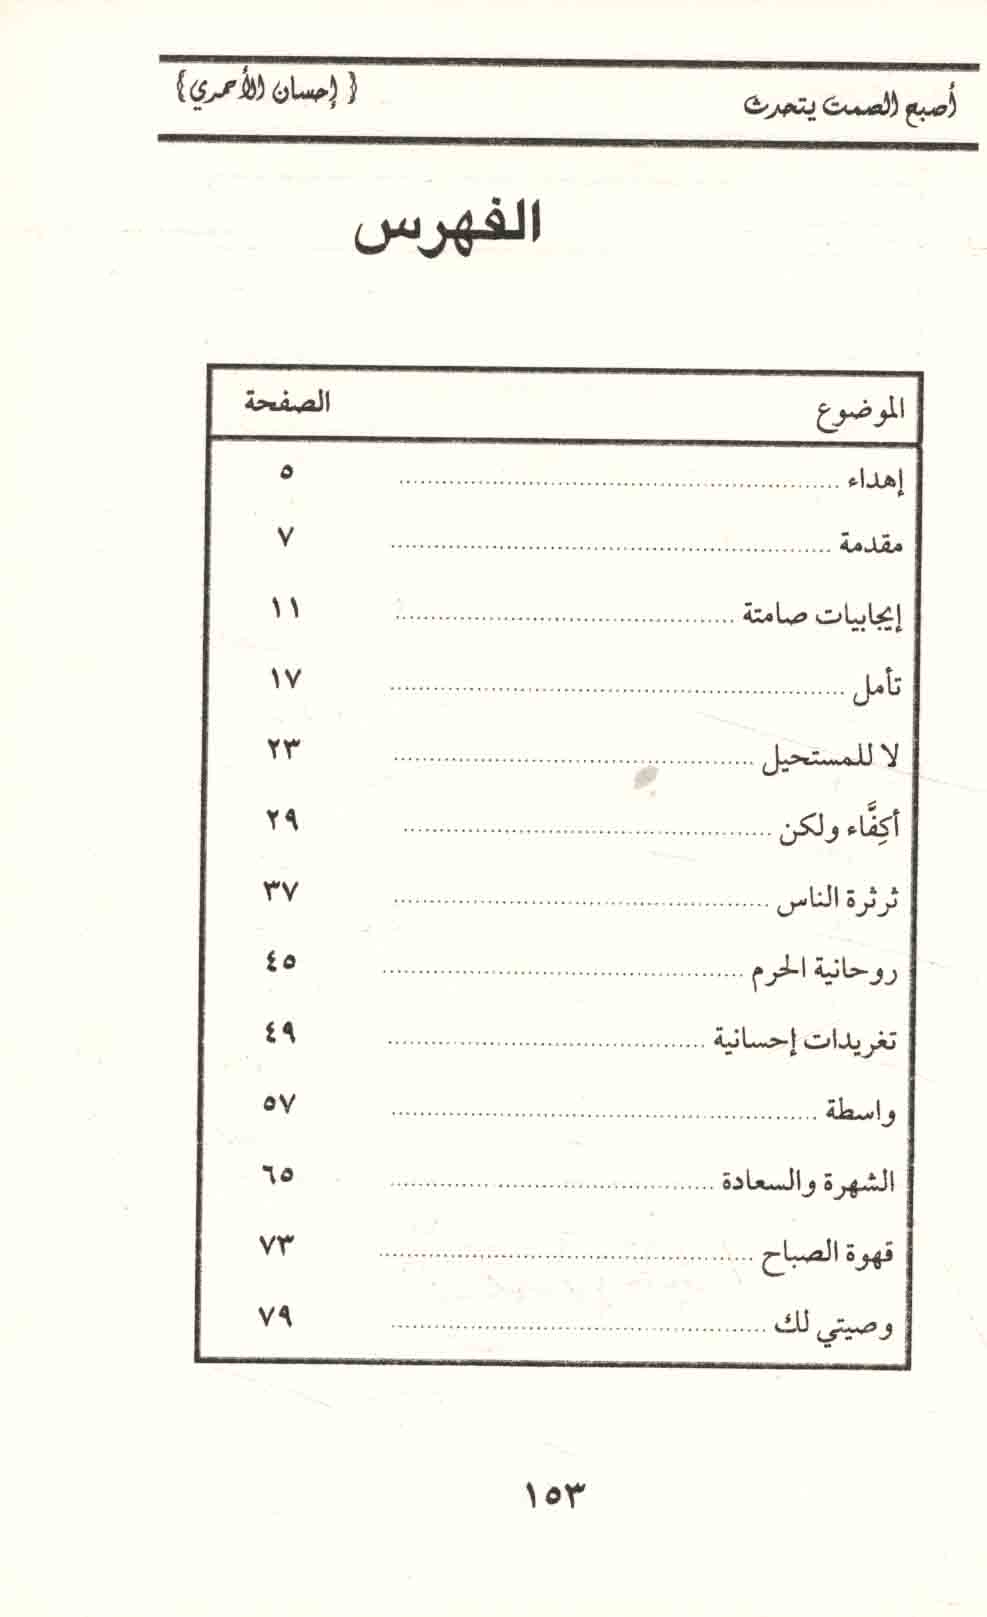 أصبح الصمت يتحدث { إحسان الأحمدي }
الفهرس
الموضوع الصفحة
إهداء ........................ ٥
مقدمة ........................ ٧
إيجابيات صامتة ........................ ١١
تأمل ........................ ١٧
لا للمستحيل ........................ ٢٣
أكِفَّاء ولكن ........................ ٢٩
ثرثرة الناس ........................ ٣٧
روحانية الحرم ........................ ٤٥
تغريدات إحسانية ........................ ٤٩
واسطة ........................ ٥٧
الشهرة والسعادة ........................ ٦٥
قهوة الصباح ........................ ٧٣
وصيتي لك ........................ ٧٩
١٥٣